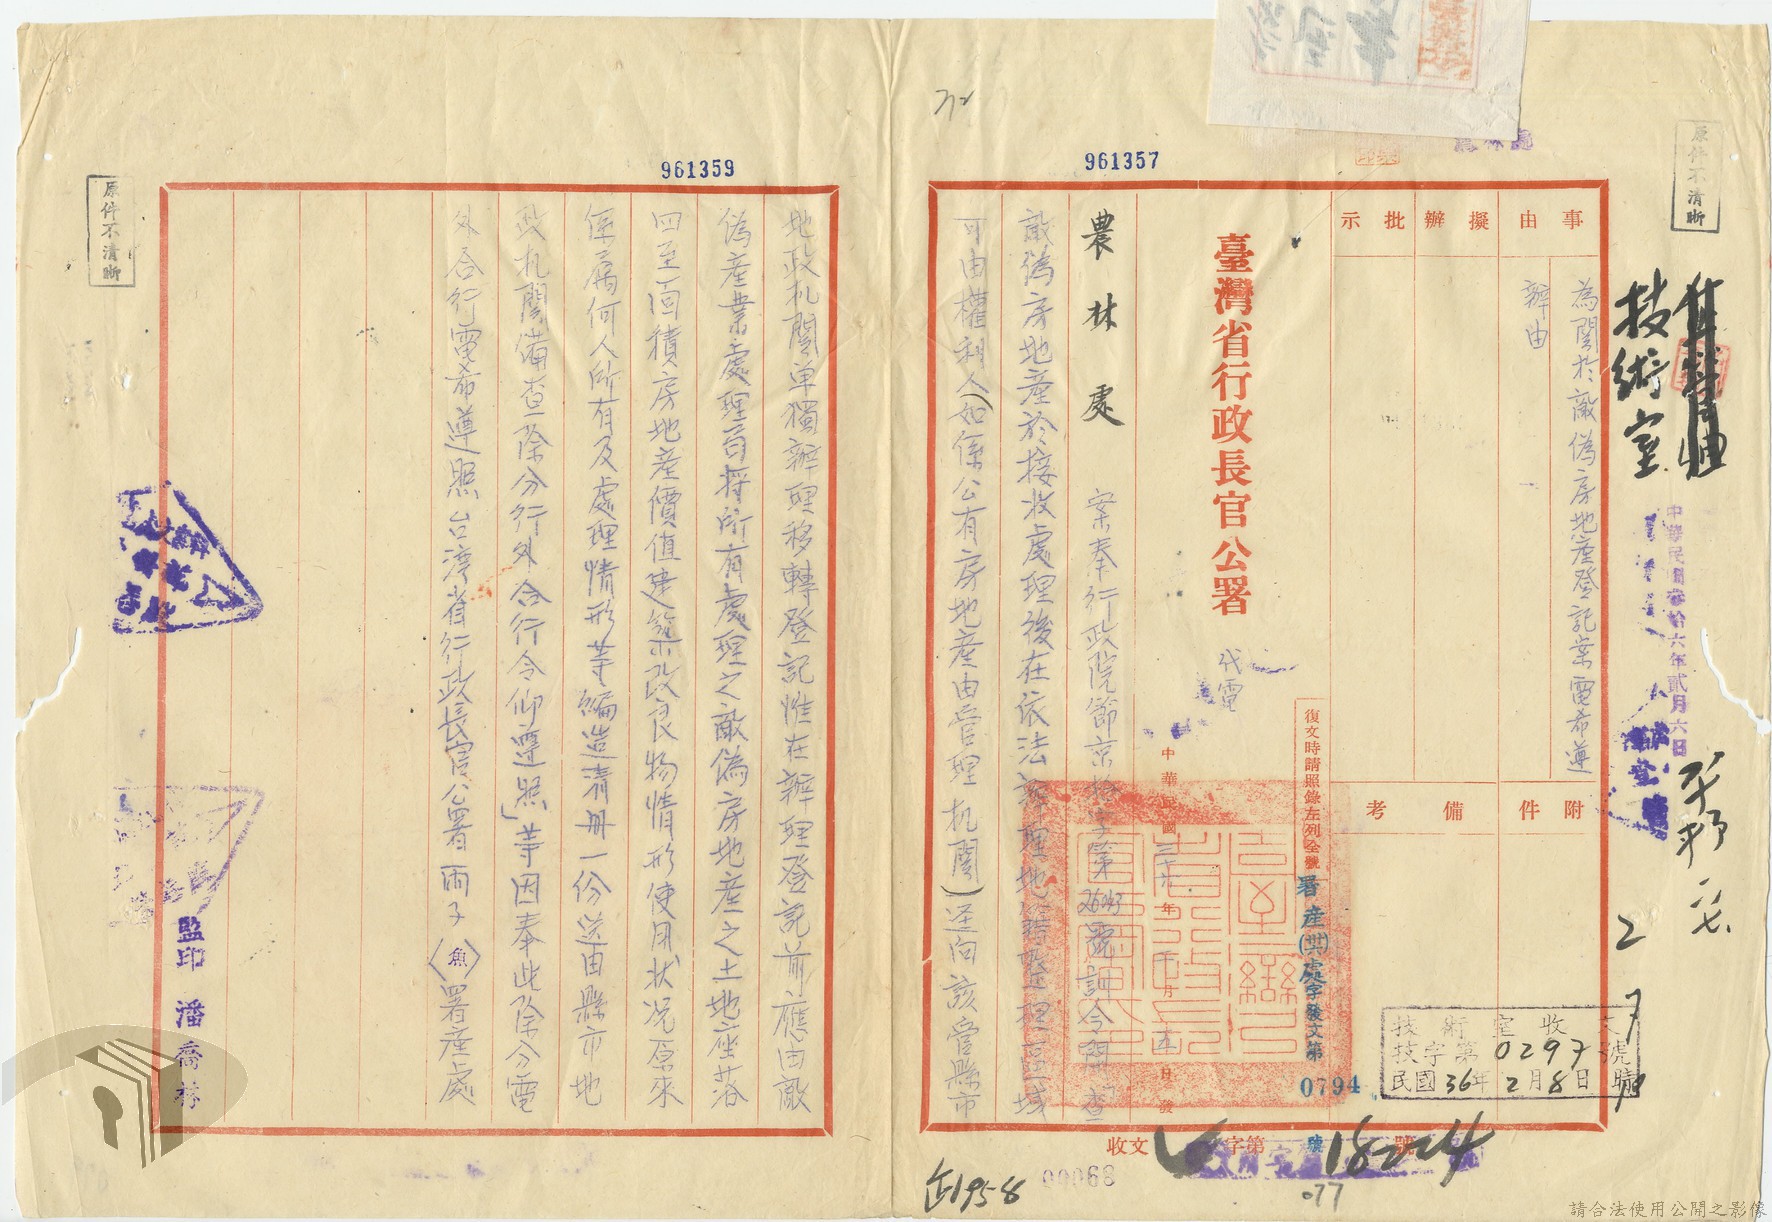 原件不清晰
技術室
中華民國叁拾六年貳月六日
事由
擬辦
批示
為関於敵偽房地產登記案電希遵
辦由
附件
備考
臺灣省行政長官公署
代電
復文時請照錄左列全號
署產(卅六)處字發文第0794號
中華民國三十六年 月 日發
技術室收文
技字第0297號
民國36年2月8日
收文 字第18224號
農林處
案奉行政院節京 字第26043號訓令開「查
敵偽房地產於接收處理後在依法辦理地籍整理區域
可由權利人(如係公有房地產由管理机関)逕向該管縣市
961357
00068
077
地政机関單獨辦理移轉登記惟在辦理登記前應由敵
偽產業處理 將所有處理之敵偽房地產之土地座落
四至面積房地產價值建築改良物情形使用狀況原來
係屬何人所有及處理情形等編造清册一份送由縣市地
政机関備查除分行外合行令仰遵照」等因奉此除分電
外合行電希遵照台灣省行政長官公署丙子(魚)署產處
監印 潘喬
961359
原件不清晰
請合法使用公開之影像